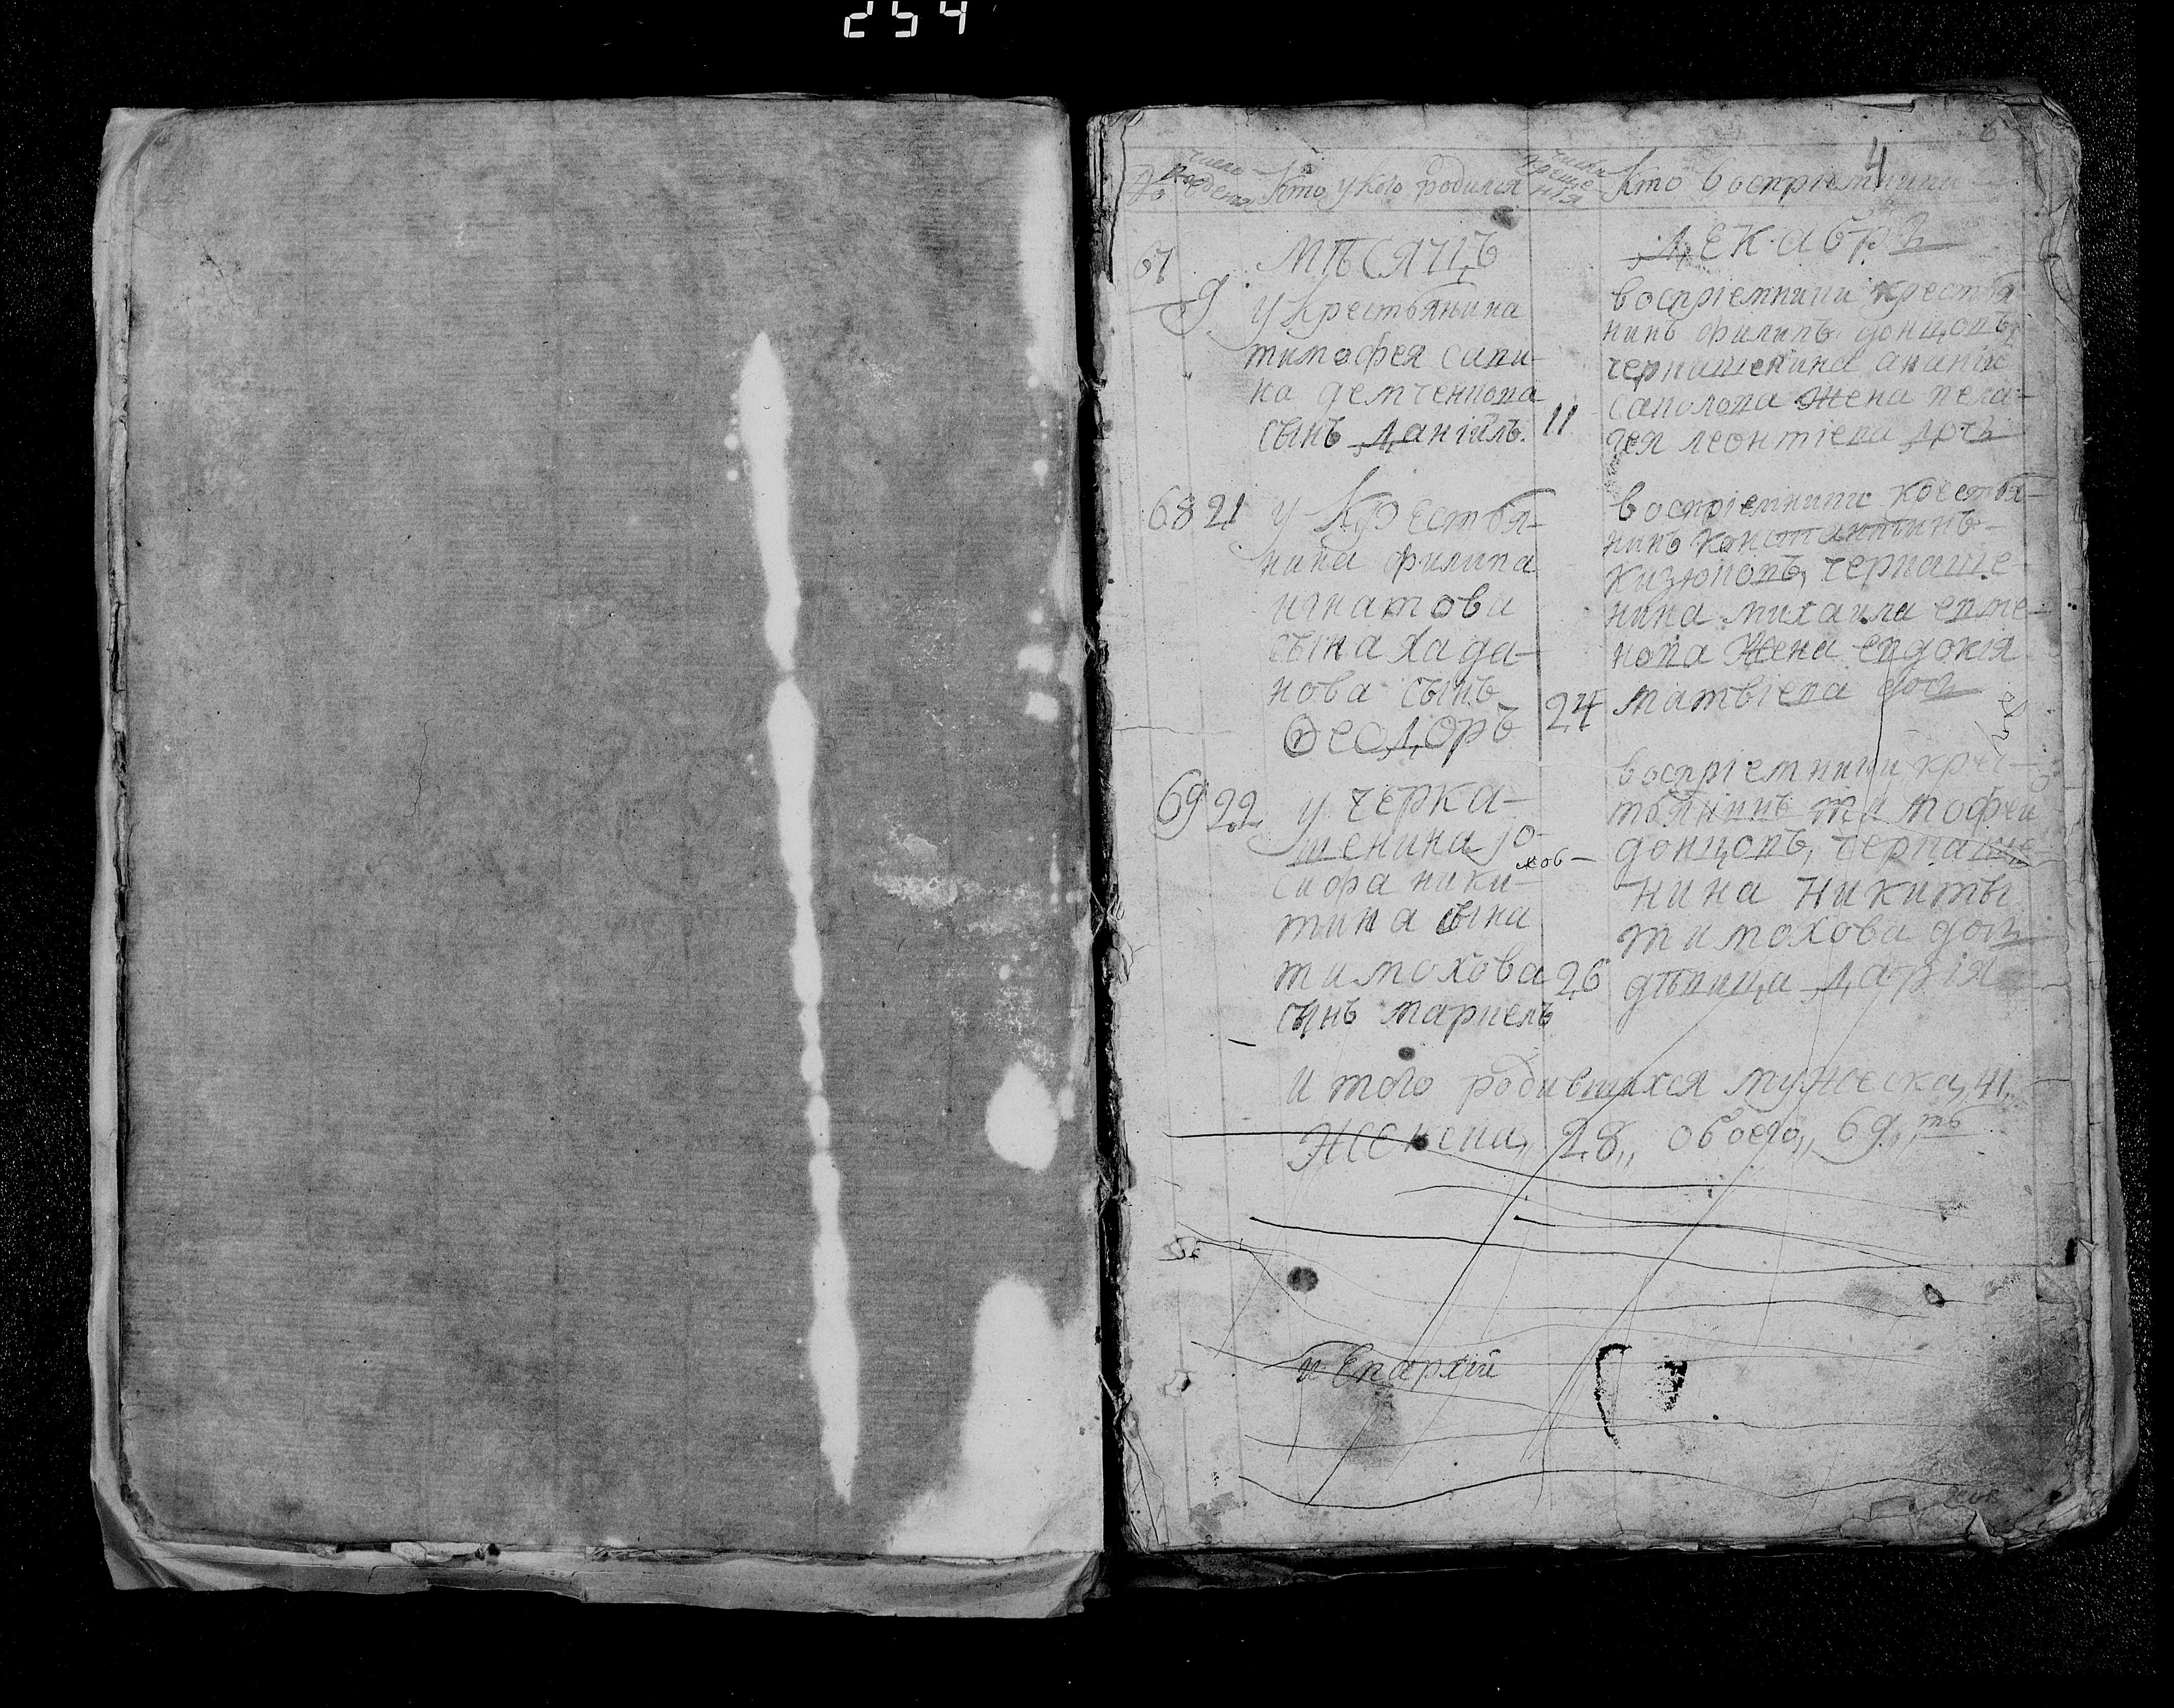 254
4
№ число рождения Кто у кого родился число крещения Кто восприемники
67
МѢСЯЦЪ
ДЕКАбрь
9
у крестьянина
тимофея сави-
ка демченкова
сынъ Даніилъ. 11
воспріемники крестья
нинъ филипъ донцовъ,
черкашенина ананіи
саполова жена пела-
гея леонтіева дочь
68 21 у Крестья-
нина филипа
игнатова
сына хада-
нова сынъ
Ѳеодоръ 24
воспріемники крестья-
нинъ константинъ
Кизюковъ, черкаше-
нина михаила евте-
нова жена евдокія
матвіева дочь
69 22 у черка-
шенина јо-
сифа ники-
тина сына
тимохова 26
сынъ маркелъ
воспріемники крес-
тьянинъ тимофей
донцовъ, черкаше
нина никиты
тимохова дочь
дѣвица Дарія
и того родившихся мужеска, 41,
женска,, 28,, обоего,, 69,, ть
и Епархіи